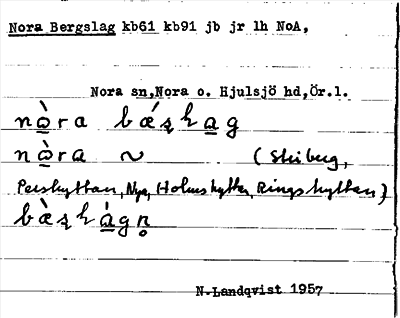 Nora Bergslag kb61 kb91 jb jr lh NoA,
Nora sn,Nora o. Hjulsjö hd,Ör.l.
nòra bǽʂlag
nòra ~ (Striberg,
Pershyttan, Nya, Holmshyttan, Ringshyttan)
bæ̀ʂlàgn̥
N.Landqvist 1957